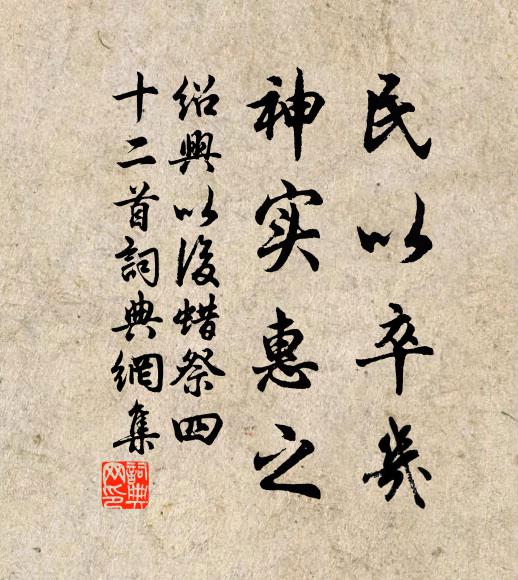 民以卒歲
神实惠之
紹興以後蜡祭四
十二首詞典網集
詞典网印